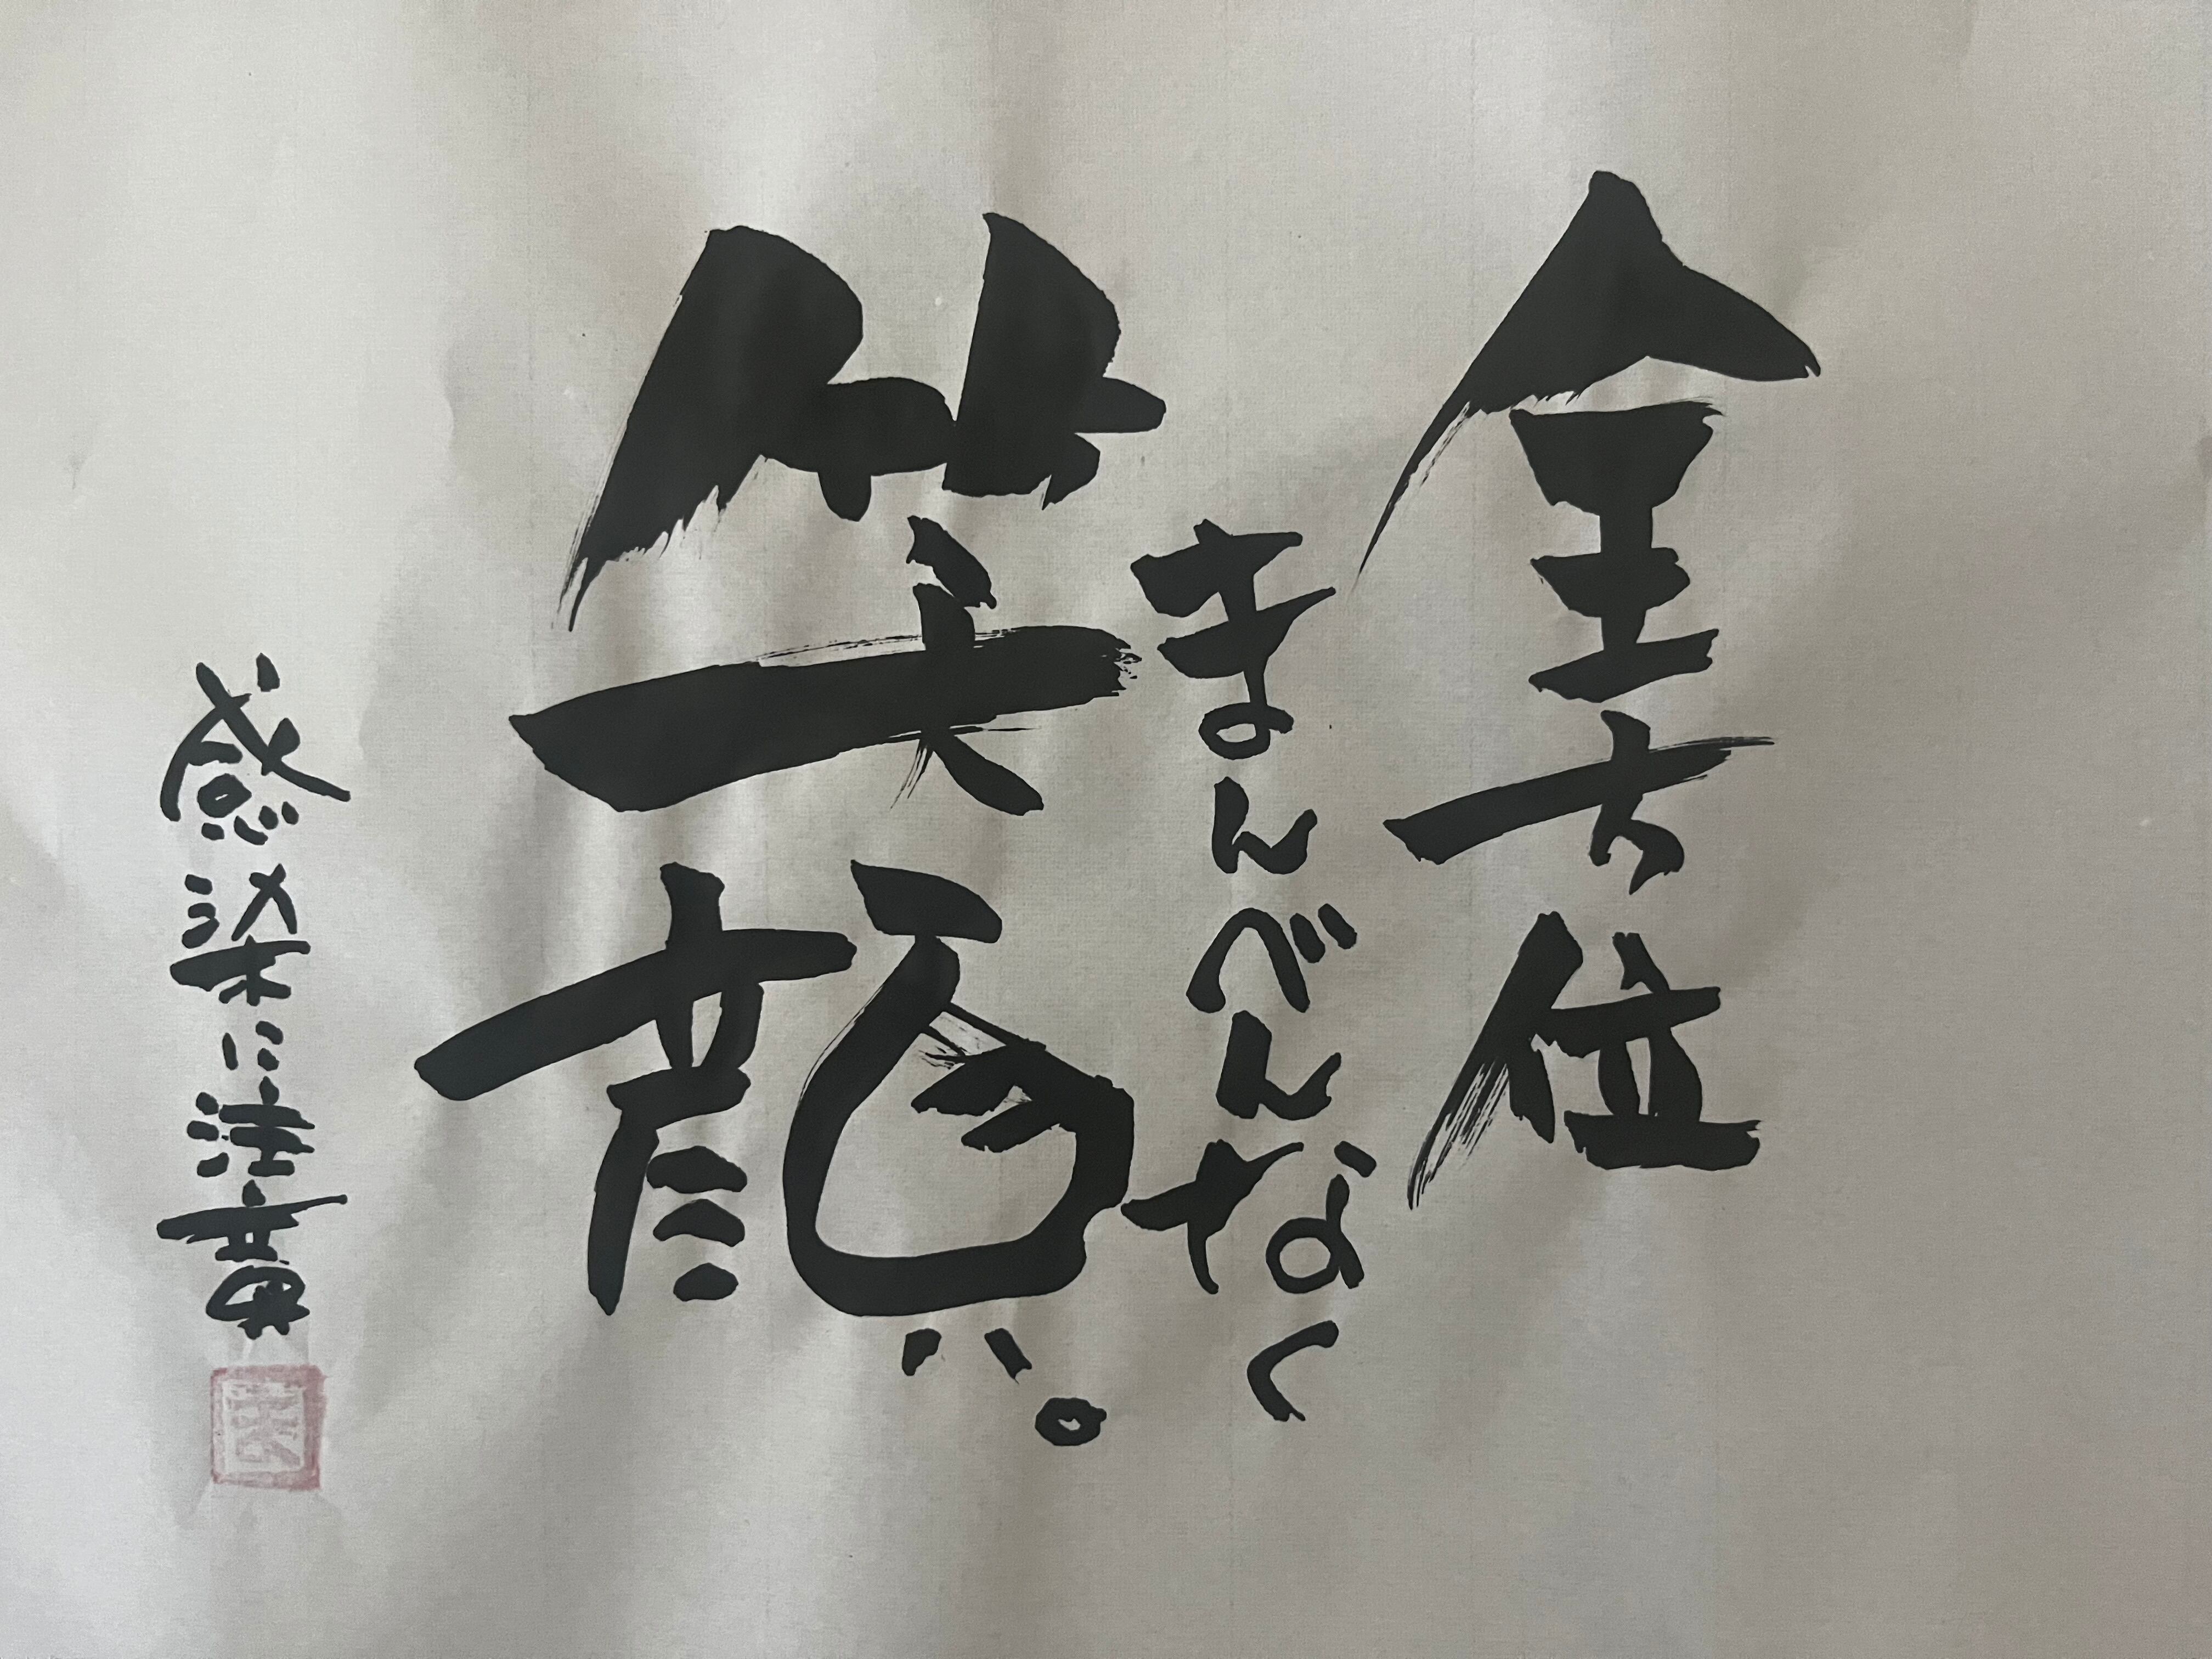 全方位
まんべんなく
笑顔。
感染に注意